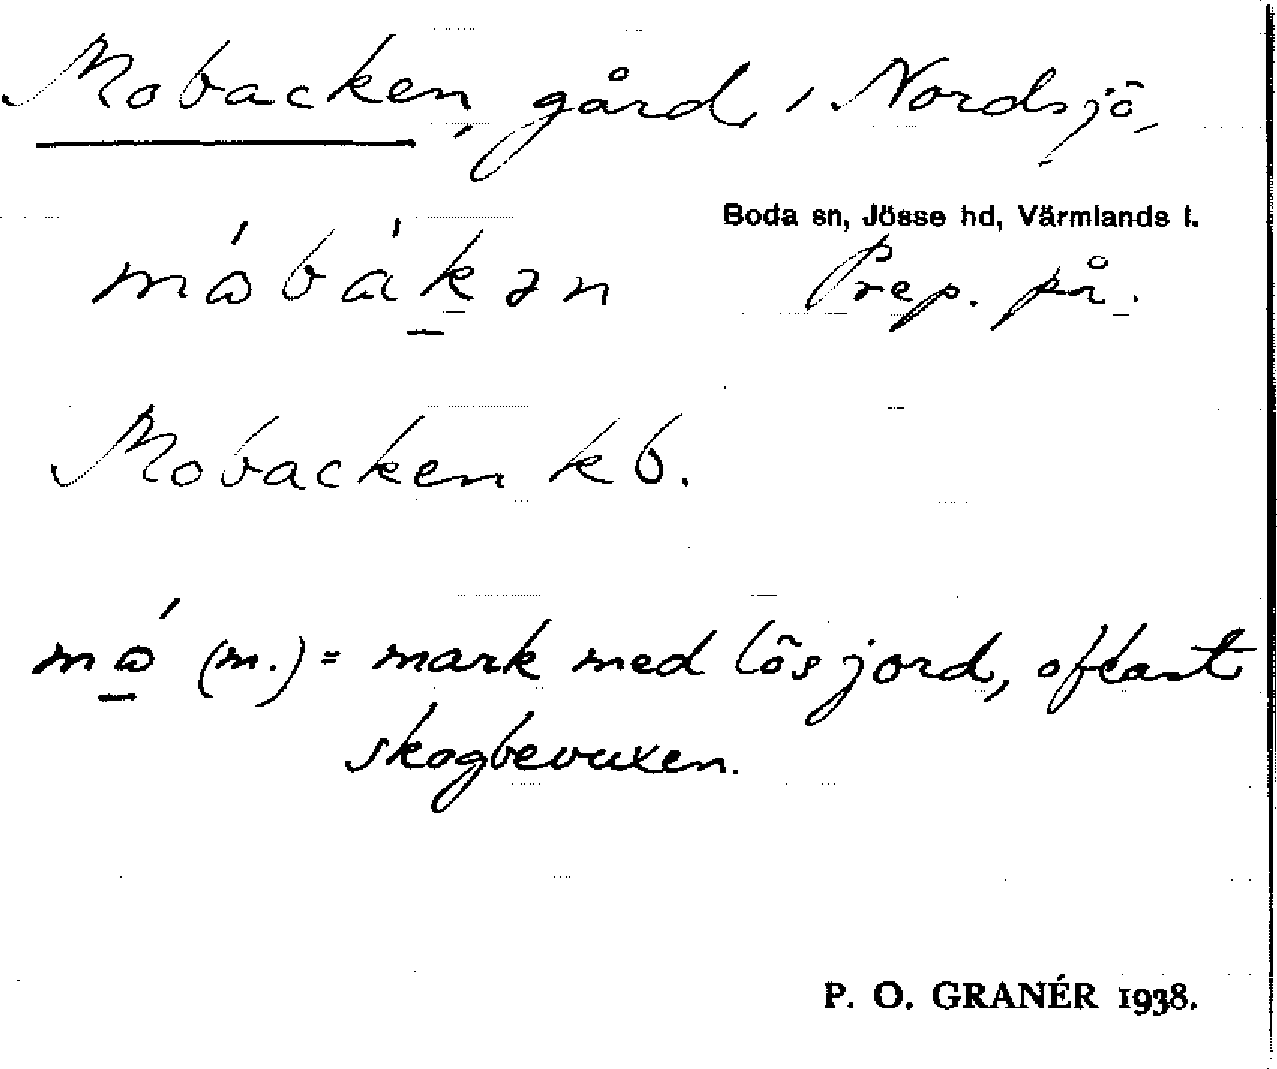 Mobacken, gård i Nordsjö,
Boda sn, Jösse hd, Värmlands l.
mɷ́bákən Prep. på.
Mobacken kb.
mɷ́ (m.) = mark med lös jord, oftast
skogbevuxen.
P. O. GRANÉR 1938.